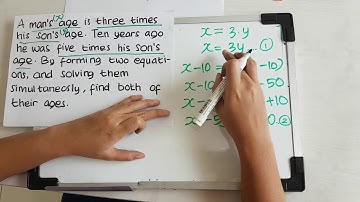 A man's (x) age is three times
his son's (y) age. Ten years ago
he was five times his son's
age. By forming two equati-
ons, and solving them
simultaneously, find both of
their ages.
x = 3·y
x = 3y ①
x-10 = -10)
x-10 -50
x- +10
x-5 0. ②